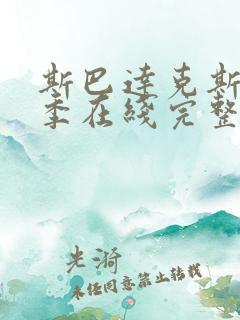 斯巴达克斯
季在线完整
光漪
未经同意禁止转载